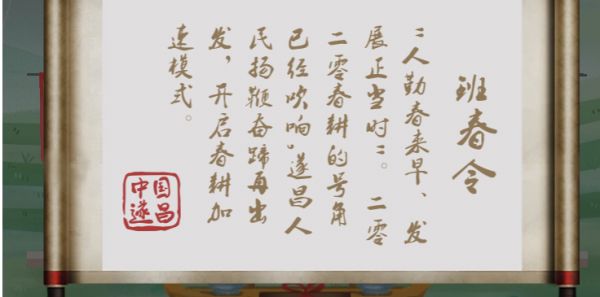 班春令
“人勤春来早、发
展正当时”。 二零
二零春耕的号角
已经吹响。遂昌人
民扬鞭奋蹄再出
发，开启春耕加
速模式。
中国
遂昌